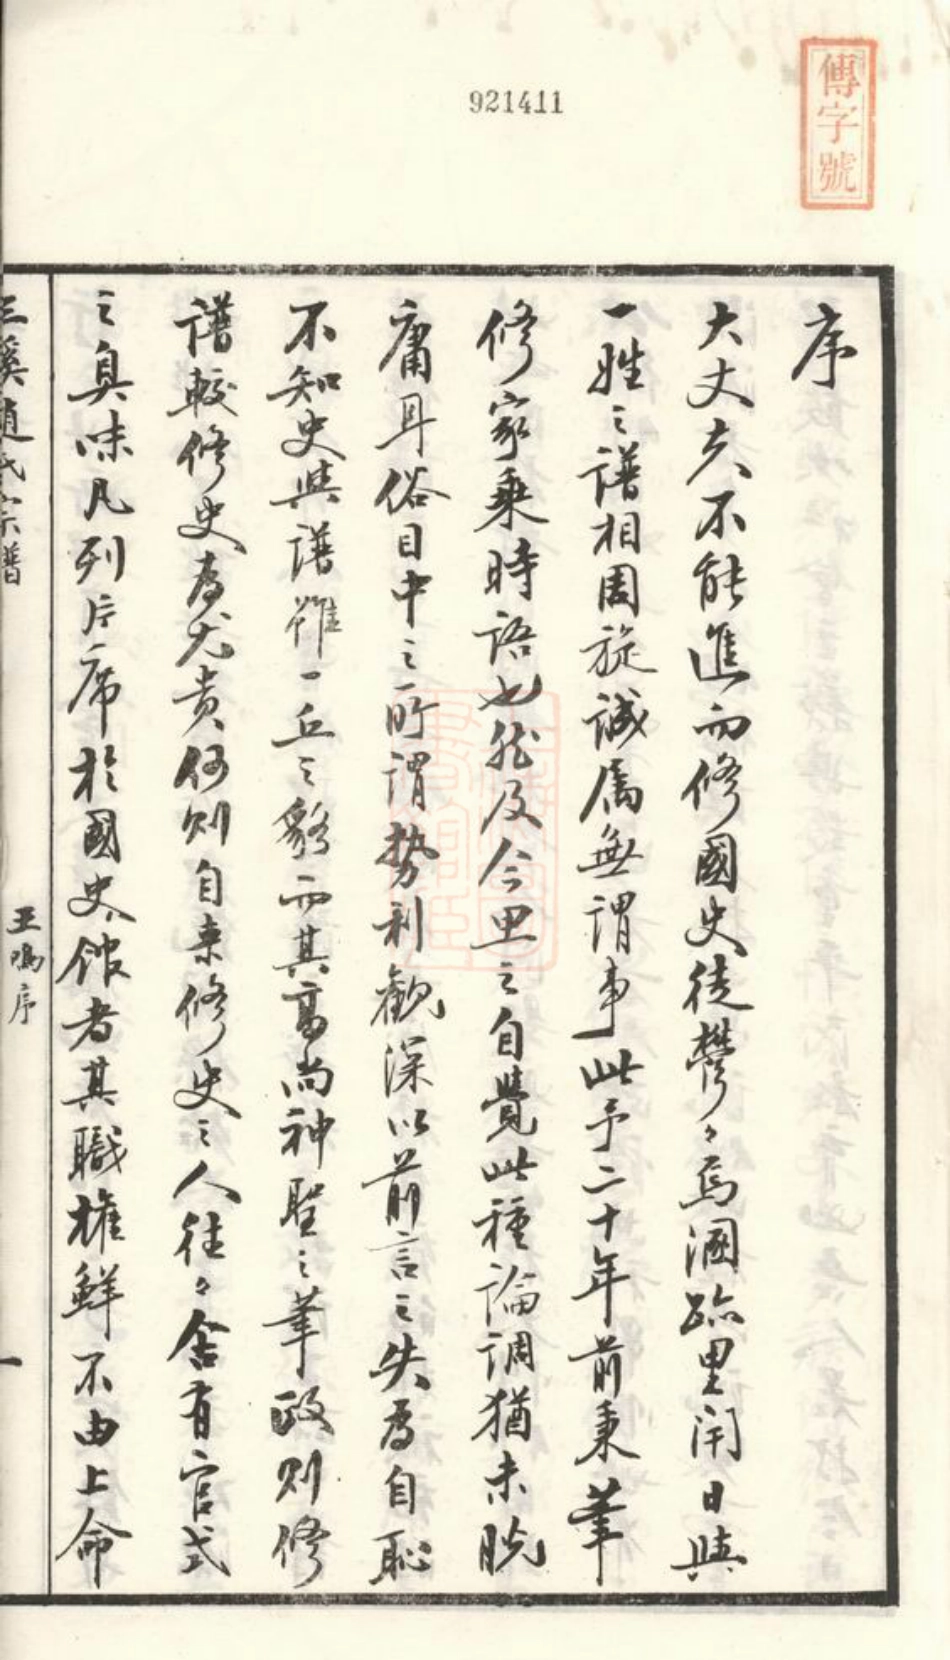 921411
傳字號
序
大丈夫不能進而修國史徒鬱々焉溷跡里閈日與
一姓之譜相周旋誠屬無謂事此予二十年前秉筆
修家乘時語也然及今思之自覺此種論調猶未脫
庸耳俗目中之所謂勢利觀深以前言之失為自恥
不知史與譜雖一丘之貉而其高尚神聖之筆政則修
譜較修史為尤貴何則自來修史之人往々含有官式
之臭味凡列片席於國史館者其職權鮮不由上命
三溪趙氏宗譜
王鳴序
一